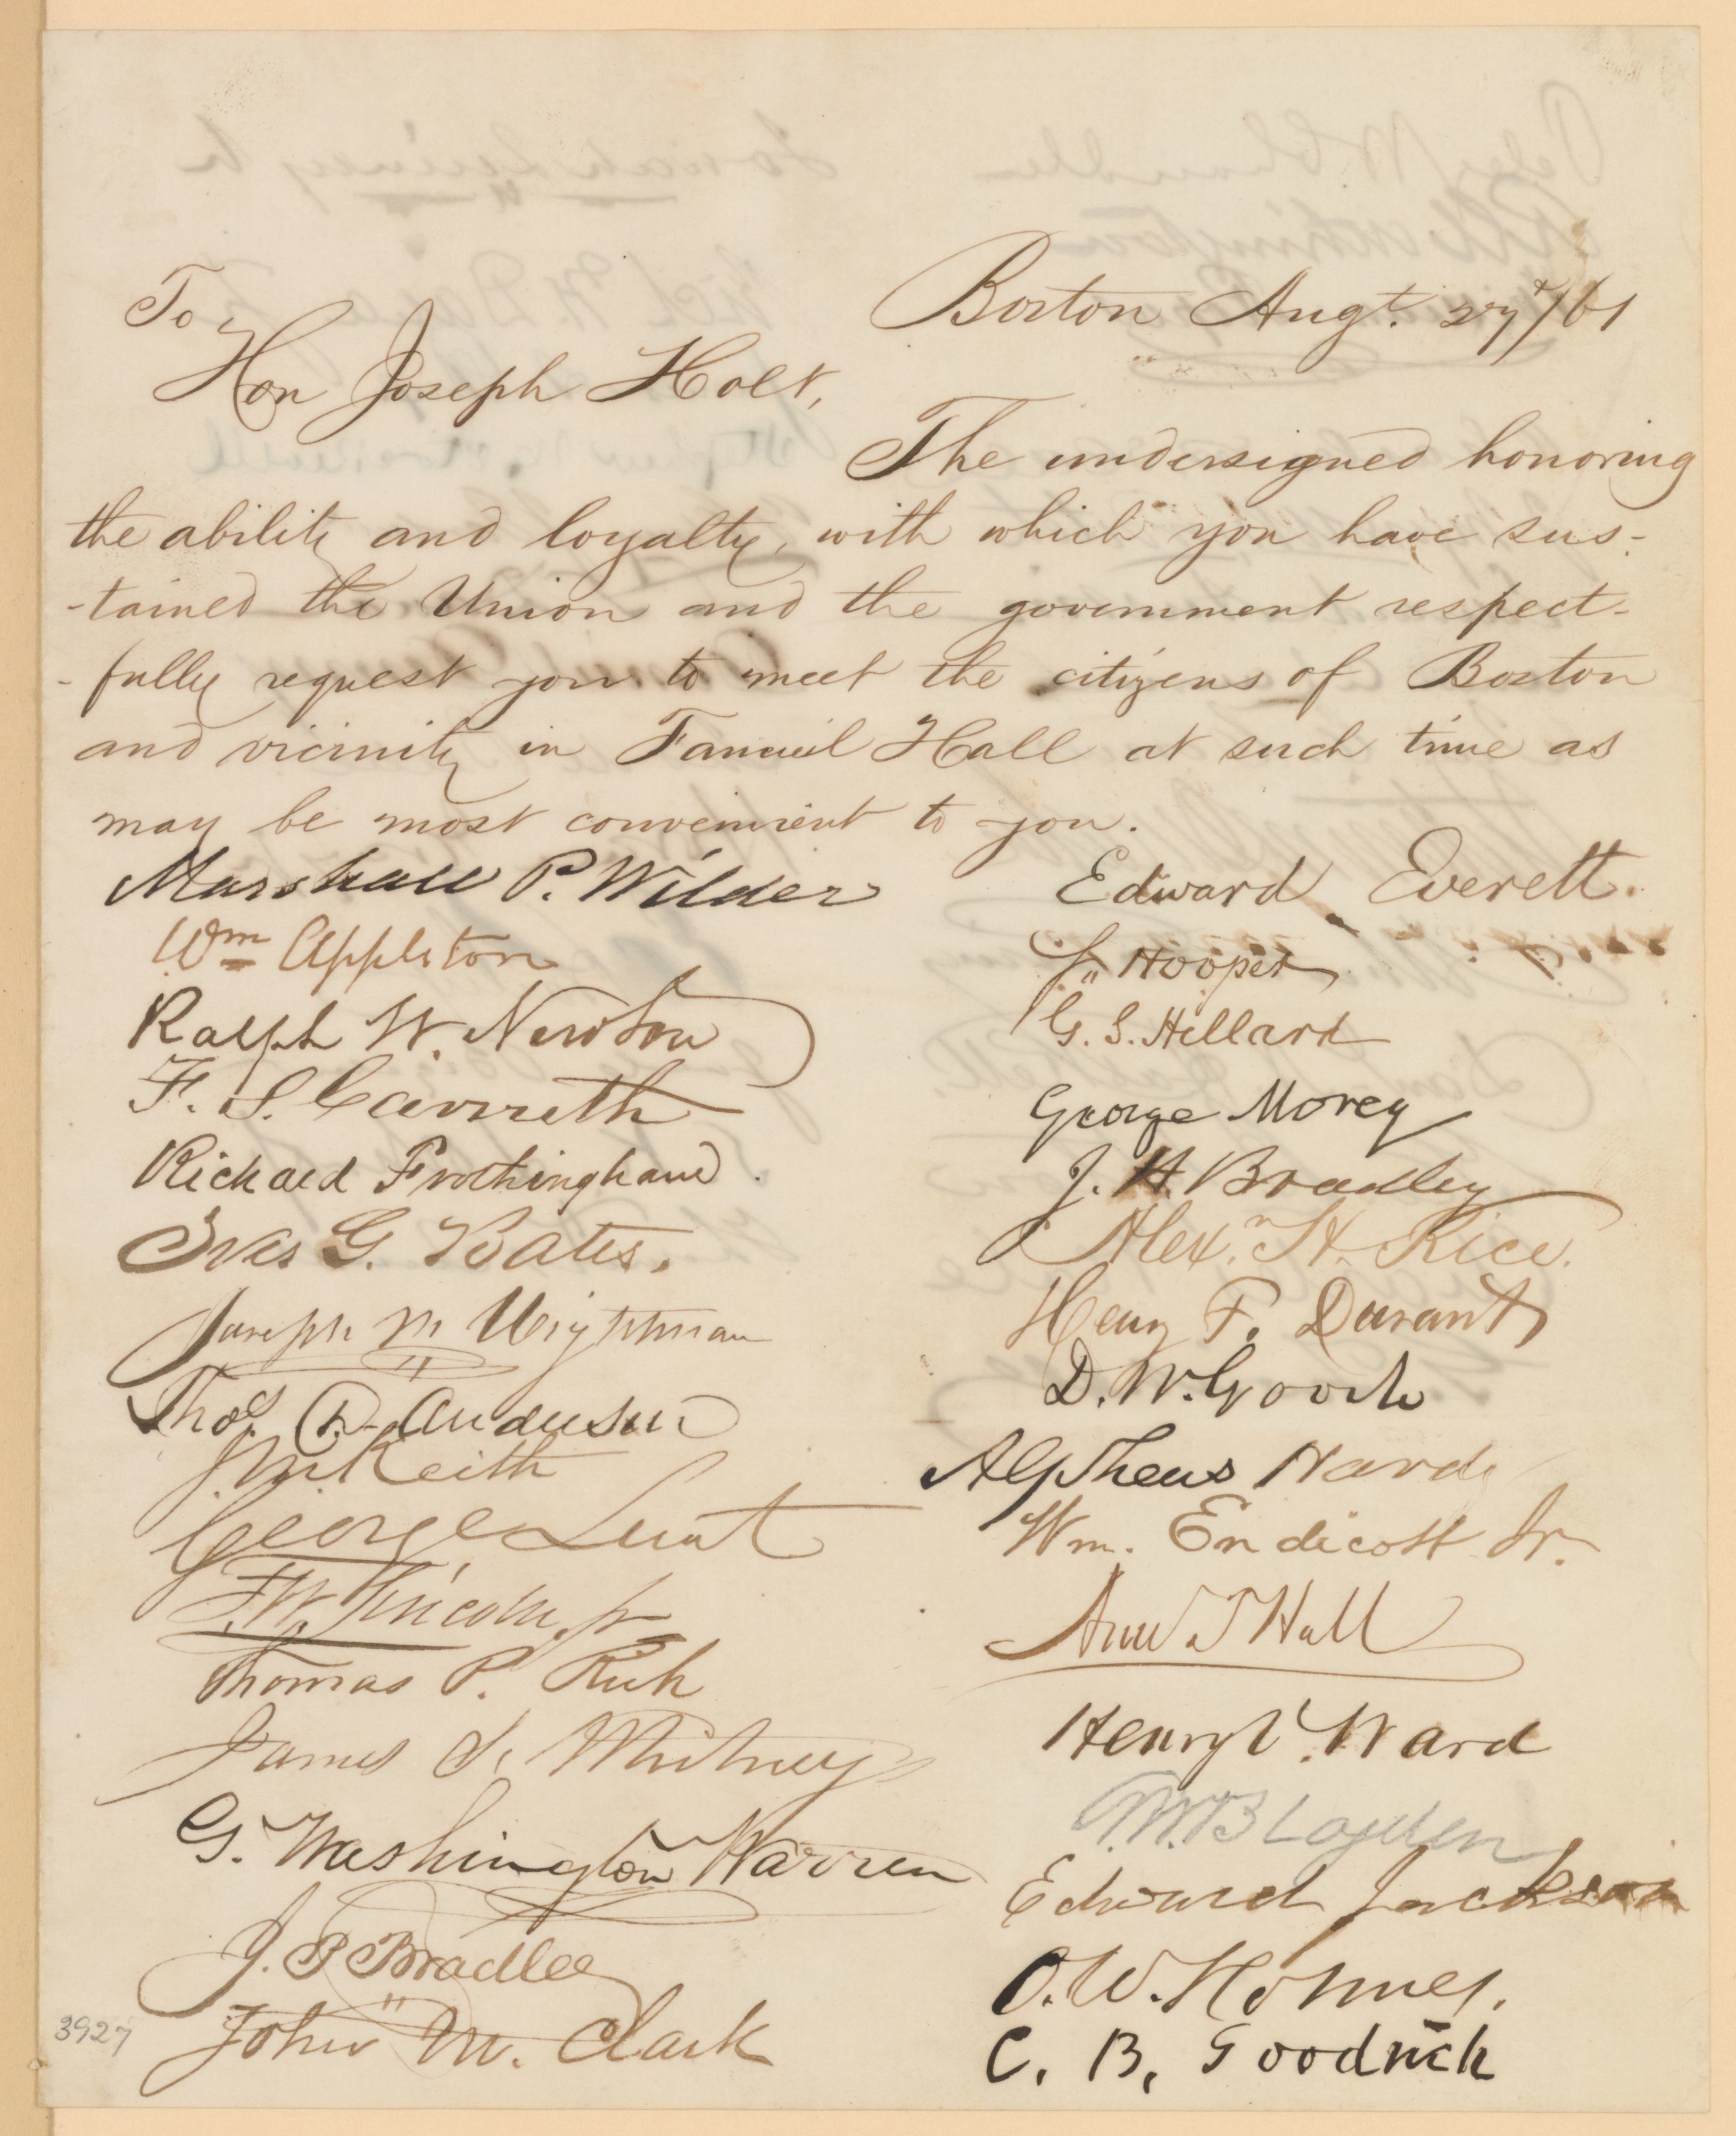 Boston Augt. 27/61
To
Hon Joseph Holt,
The undersigned honoring
the ability and loyalty, with which you have sus-
-tained the Union and the government respect-
-fully request you to meet the citizens of Boston
and vicinity in Faneuil Hall at such time as
may be most convenient to you.
Marshall P. Wilder
Wm Appleton
Ralph W. Newton
F. S. Carruth
Richard Frothingham
Ives G. Bates.
Joseph M Wightman
Thos. Anderson
J. M. Keith
George Lunt
F. W. Lincoln Jr
Thomas P. Rich
James S. Whitney
G. Washington Warren
J. P Bradlee
John M. Clark
Edward Everett.
S. Hooper
G. S. Hillard
George Morey
J. H. Bradley
Alexn. H. Rice.
Henry F. Durant
D. W. Gooch
Alpheus Hardy
Wm. Endicott Jr.
T Hall
Henry V. Ward
Edward Jackson
O. W. Holmes.
C. B. Goodrich
3927